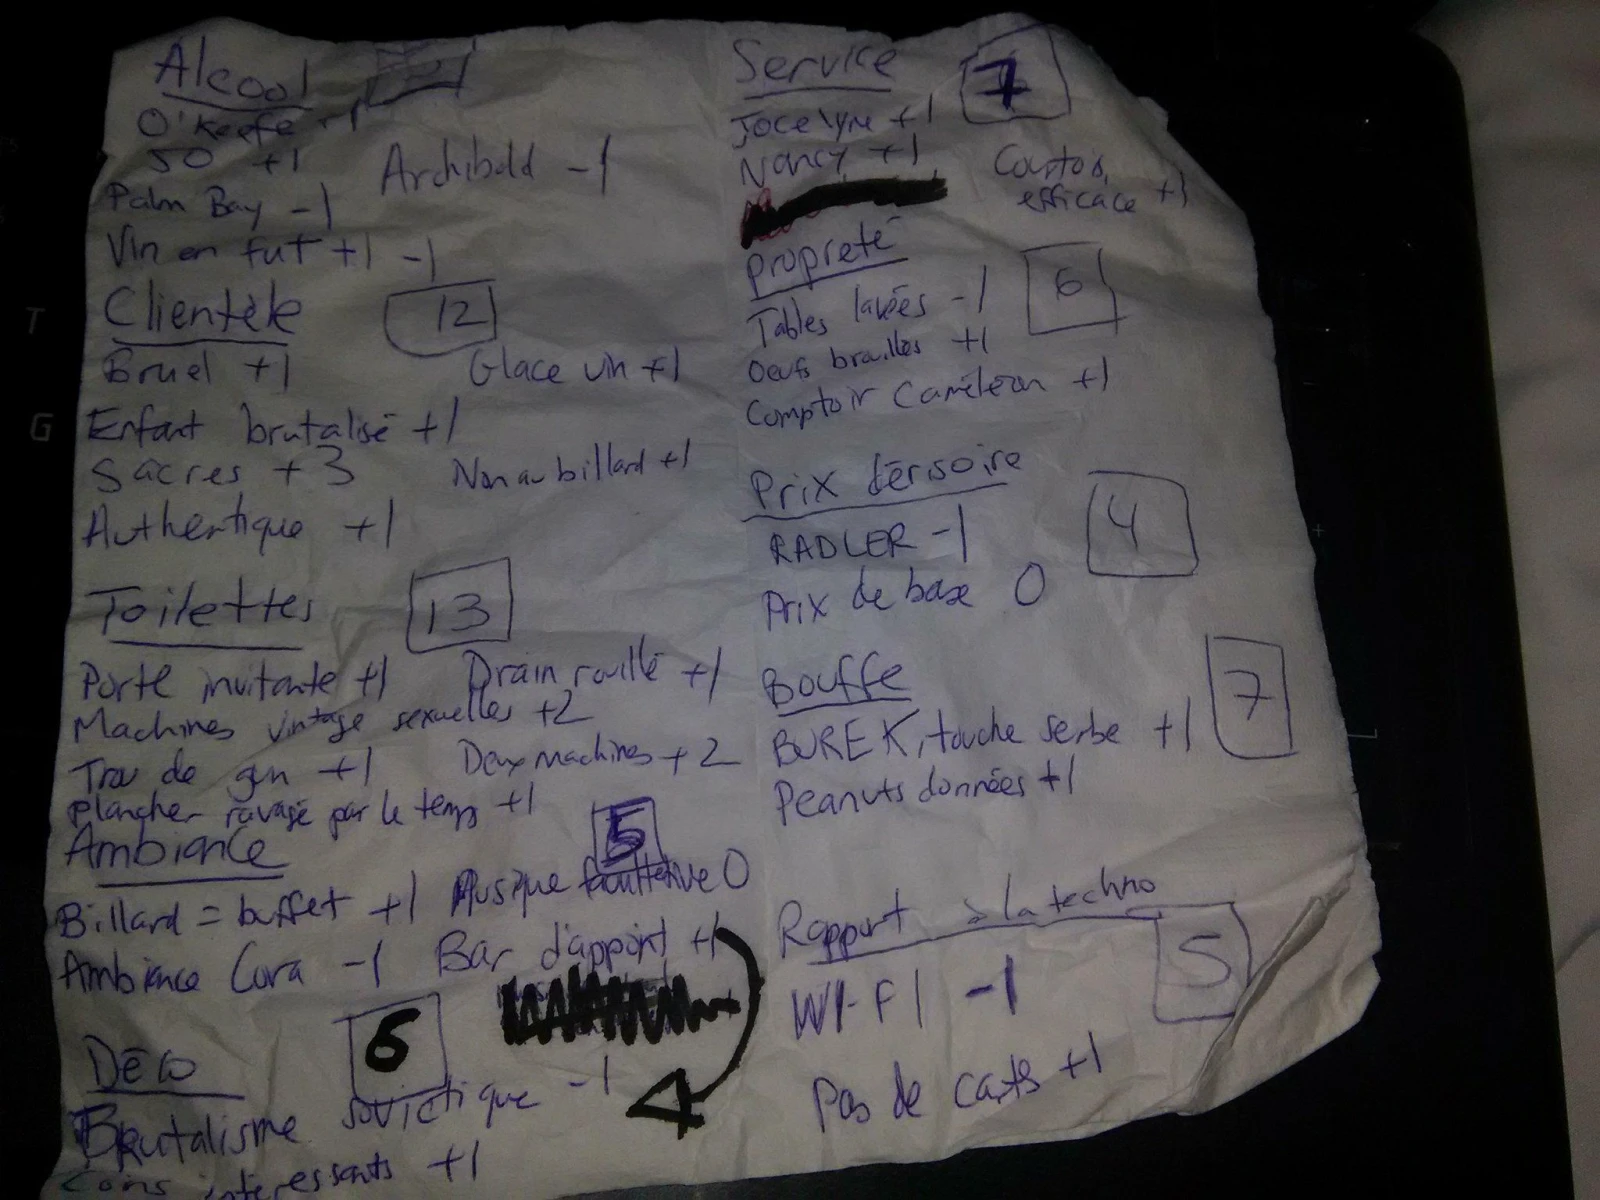 Alcool
O'Keefe +1
50 +1
Archibald -1
Palm Bay -1
Vin en fut +1 -1
Clientèle 12
Bruel +1
Glace vin +1
Enfant brutalisé +1
Sacres +3
Non au billard +1
Authentique +1
Toilettes 13
Porte invitante +1
Drain rouillé +1
Machines vintage sexuelles +2
Trou de gun +1
Deux machines +2
Plancher ravagé par le temps +1
Ambiance 5
Billard = buffet +1
Musique facultative 0
Ambiance Cora -1
Bar d'appoint +1
Déco 6
Brutalisme soviétique -1
Coins intéressants +1
Service 7
Jocelyne +1
Nancy +1
Courtois, efficace +1
Propreté 6
Tables lavées -1
Oeufs brouillés +1
Comptoir Caméléon +1
Prix dérisoire 4
RADLER -1
Prix de base 0
Bouffe 7
BUREK, touche serbe +1
Peanuts données +1
Rapport à la techno 5
WI-FI -1
Pas de carts +1
T
G